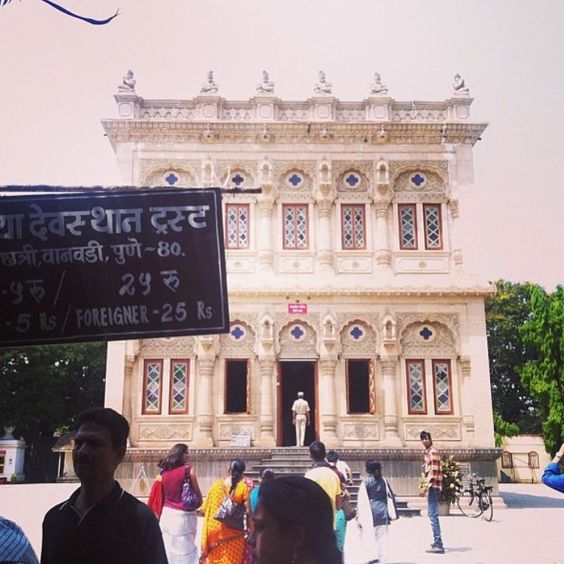 देवस्थान ट्रस्ट
छत्री, वानवडी, पुणे ~ 40.
५ रु २५ रु
- 5 Rs / FOREIGNER - 25 Rs